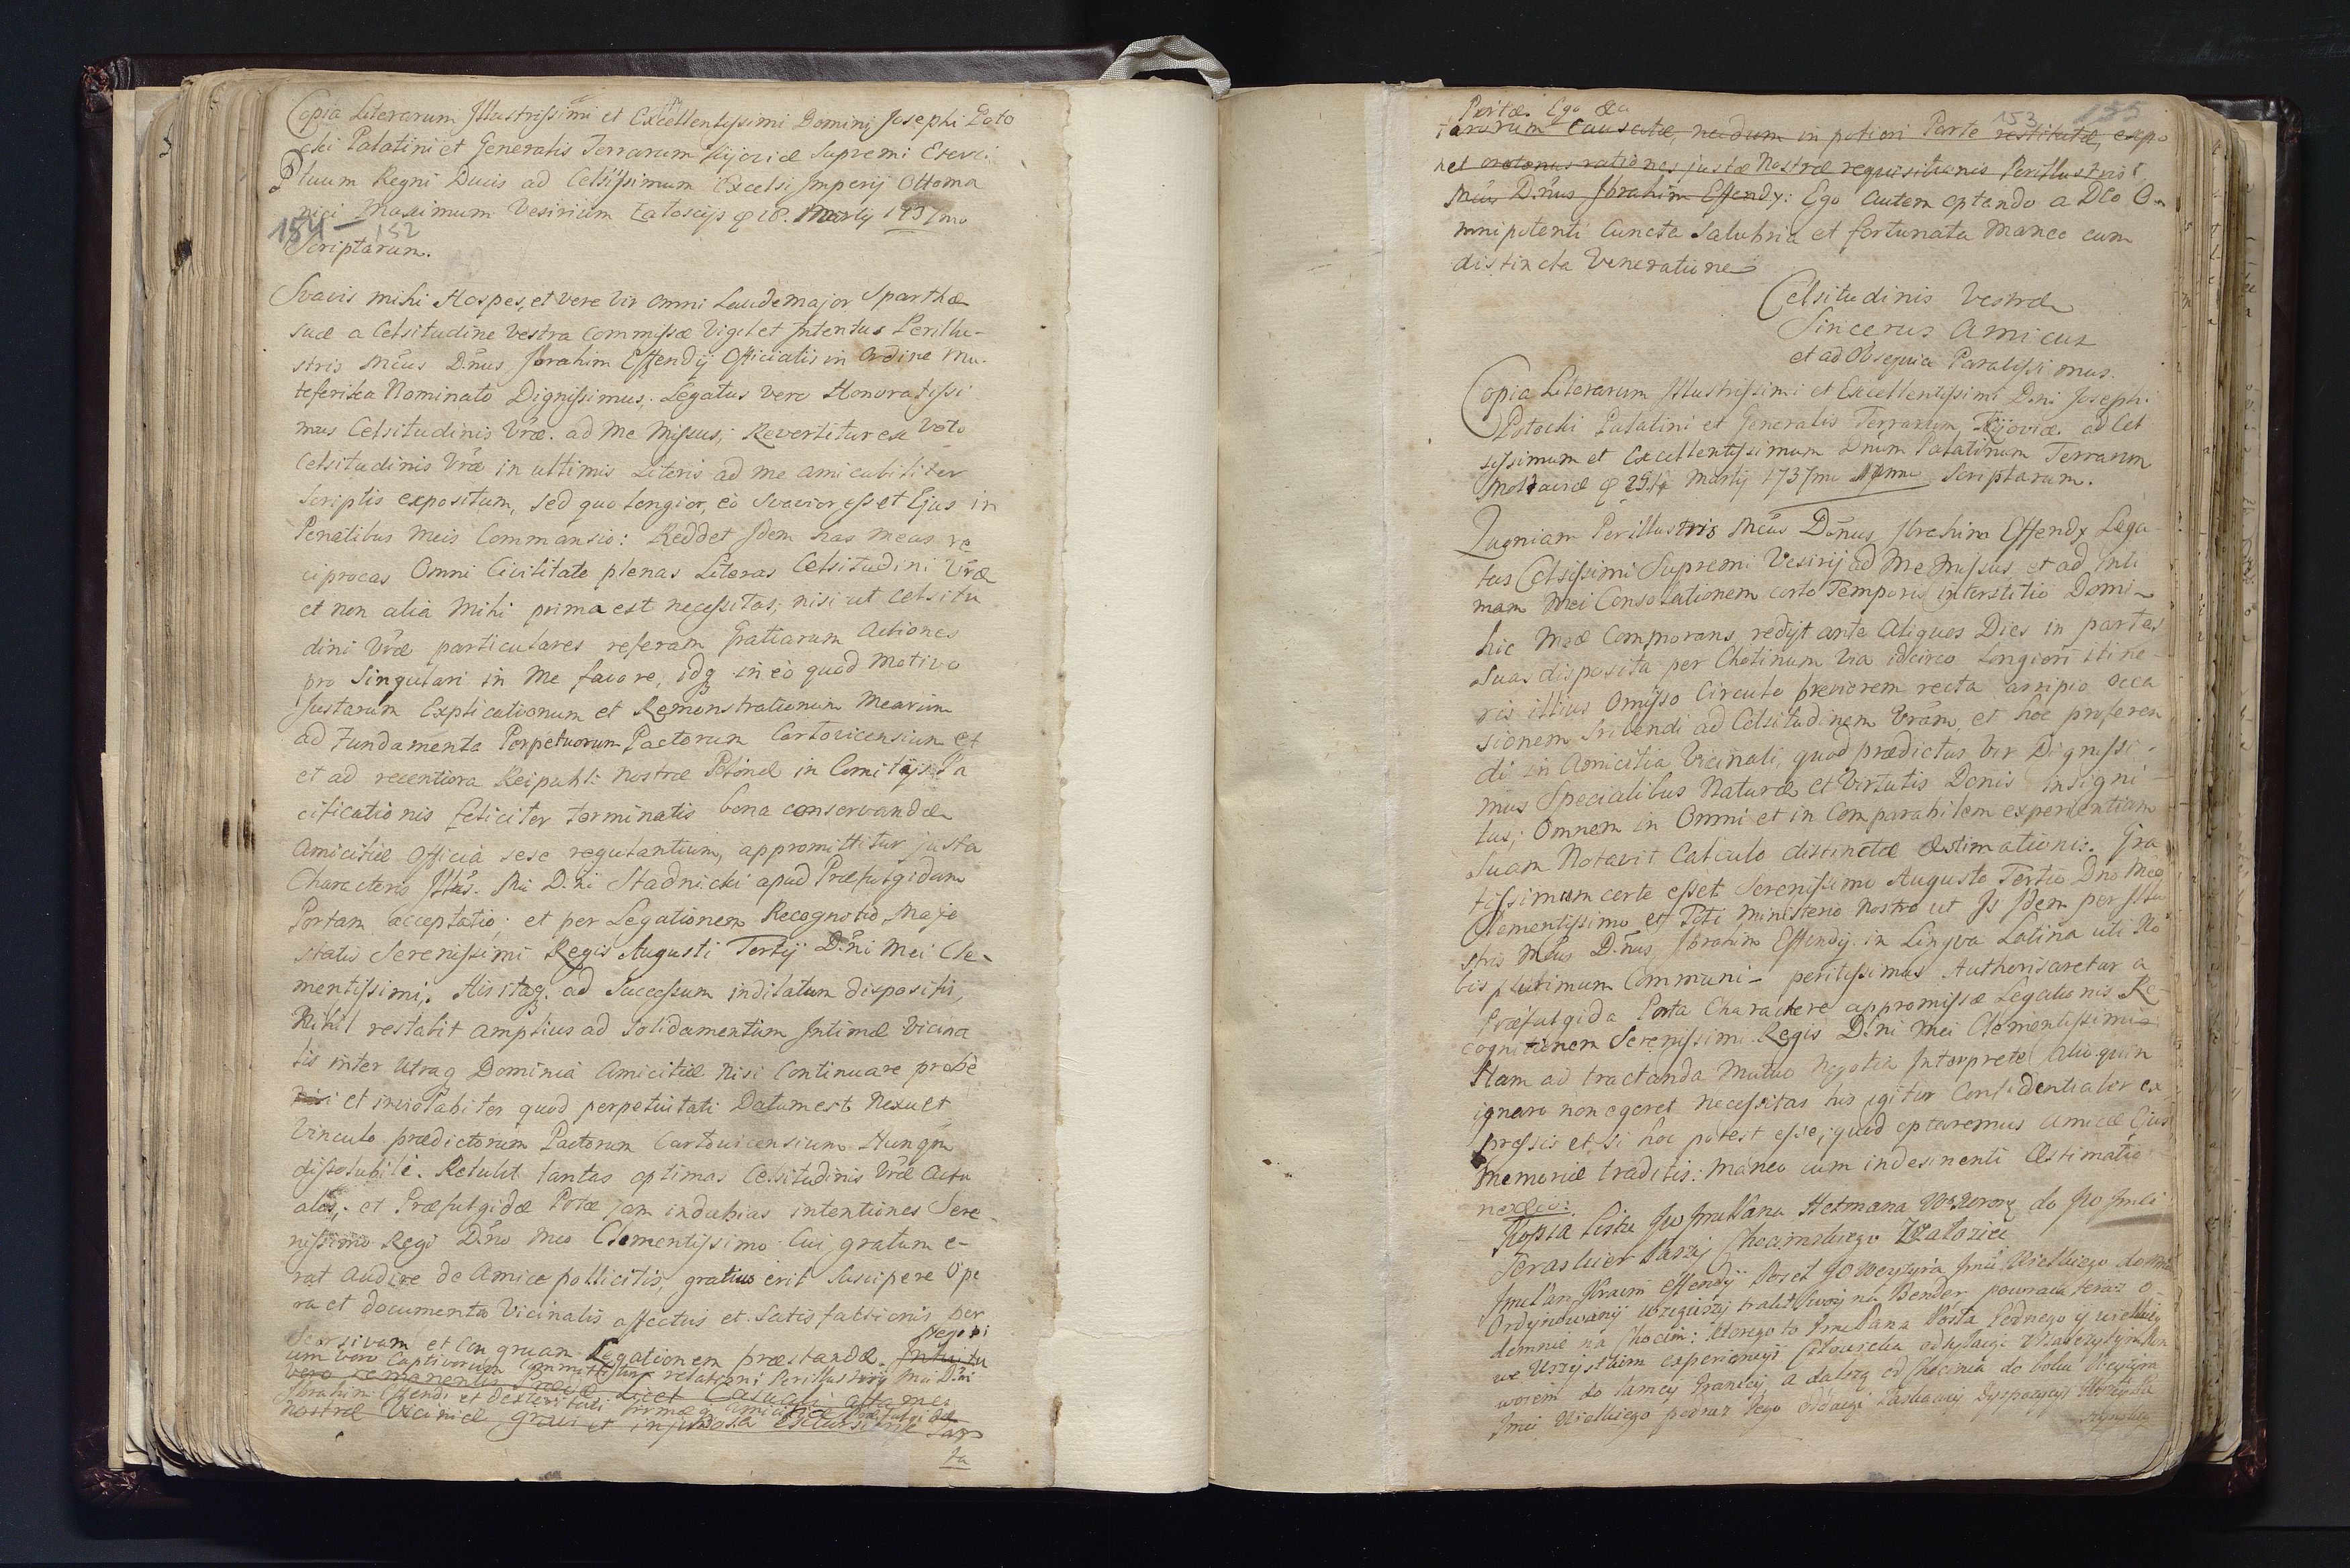 Copia Literarum Illustrissimi et Excellentissimi Domini Josephi Poto
cki Palatini et Generalis Terrarum Kijoviæ Supremi Exerci
tuum Regni Ducis ad Celsissimum Excelsi Imperij Ottoma
nici Maximum Vesirium Zatoscijs 28. Martij 1737mo
154 152
Scriptarum.
Svavis mihi Hospes, et vere Vir omni Laude major Sparthæ
suæ a Celsitudine Vestra Commissæ Vigil et Intentus Perillu-
stris Meus Dnus Ibrahim Effendij Officialis in Ordine Mu-
teferika Nominato Dignissimus. Legatus vero Honoratissi
mus Celsitudinis Vræ. ad Me Missus; Revertitur ex Voto
Celsitudinis Vræ in ultimis Literis ad me amicabiliter
Scriptis expositum, sed quo longior, eò Svavior esset Ejus in
Penatibus Meis Commansio: Reddet Idem has meas re
ciprocas Omni Civilitate plenas Literas Celsitudini Vræ
et non alia Mihi prima est necessitas; nisi ut Celsitu
dini Vræ particulares referam Gratiarum Actiones
pro Singulari in Me favore, idq in eò quod Motivo
Justarum Explicationum et Remonstrationum Mearum
ad Fundamenta Perpetuorum Pactorum Carlovicensium et
et ad recentiora Reipubl: nostræ Polonæ in Comitijs Pa
cificationis feliciter terminatis bona conservandæ
Amicitiæ Officia sese regulantium, appromittitur justa
Characteris Illus. Mei D.ni Stadnicki apud Præfulgidam
Portam acceptatio; et per Legationem Recognitio Maje
statis Serenissimi Regis Augusti Tertij D.ni Mei Cle-
mentissimi. His itaq. ad Successum inditatum dispositis,
Nihil restabit amplius ad Solidamentum Intimæ Vicina
lis inter Utraq Dominia Amicitiæ nisi Continuare probè
nisi et inviolabiter quod perpetuitati Datum est Nexu et
Vinculo prædictorum Pactorum Carlovicensium Nunqm
dissolubile. Retulit tantas optimas Celsitudinis Vræ Actu
ales, et Præfulgidæ Portæ jam indubias intentiones Sere-
nissimo Regi Dno Meo Clementissimo Cui gratum e-
rat audire de Amice pollicitis, gratius erit Suscipere Ope
ra et documenta Vicinalis affectus et Satisfactionis per
Negoti
et Congruam Legationem præstandæ. Intuitu
um vero Captivorum Committitur relationi Perillustris Mei D.ni
vero remanentis Prædæ licet
Ibrahim Effendi et dexteritati
nostræ Viciniæ gravi et injuriosa excursione Tar
ta
Portæ. Ego &a 153 155
tarorum causatæ, necdum in potiori Parte restitutæ, expo
net rationes justæ Nostræ requisitionis Perillustris
Meus Dnus Ibrahim Effendy: Ego autem optando a Deo O-
mnipotenti Cuncta Salubria et fortunata Maneo cum
distincta Veneratione
Celsitudinis Vestræ
Sincerus Amicus
et ad Obsequia Paratissimus.
Copia Literarum Illustrissimi et Excellentissimi D.ni Josephi
Potocki Palatini et Generalis Terrarum Kijoviæ. ad Cel
sissimum et Excellentissimum Dnum Palatinum Terrarum
Moldaviæ 29 Martij 1737mo Scriptarum.
Quoniam Perillustris Meus Dnus Ibrahim Effendy Lega
tus Celsissimi Supremi Vesirij ad Me Missus et ad Inti
mam Mei Consolationem certo Temporis interstitio Domi-
hic Meæ Commorans, redijt ante Aliquos Dies in partes
Suas disposita per Chotinum Via idcirco longiori itine-
ris illius Omisso Circulo breviorem recta arripio occa
sionem Scribendi ad Celsitudinem Vram et hoc proferen
di in Amicitia Vicinali, quod prædictus Vir Dignissi-
mus Specialibus Naturæ et Virtutis Donis insigni
tus; Omnem in Omni et in Comparabilem experientiam
Suam Notavit Calculo distinctæ Æstimationis. Gra
tissimum certe esset Serenissimo Augusto Tertio Dno Meo
Clementissimo et Toti Ministerio Nostro ut Is Idem perillu
stris Meus D.nus Ibrahim Effendij in Lingva Latina uti No
bis plurimum Communi- peritissimus Authorisaretur a
Præfulgida Porta Charactere appromissæ Legationis Re-
cognitionem Serenissimi Regis D.ni Mei Clementissimi
Nam ad tractanda Mutuo Negotia Interprete Alioquin
ignaro non egeret Necessitas his igitur Confidentialiter ex
pressis et si hoc potest esse, quod optaremus amicæ Ejus
Memoriæ traditis: Maneo cum indesinenti Æstimatio
ne
Kopia Listu Jo Jmci Pana Hetmana W Koronnego do Jo Jmci
Seraskier Paszy Chocimskiego Załozice
Jmc Pan Ibraim Effendij Poset Jo Weyzyra Jmci Wielkiego do mnie
Ordynowany wziąwszy trakt swoy na Bender powraca teraz o-
demnie na Chocim: ktorego to Jmci Pana Posła Godnego y wielkiej
we Wszystkim experiencyi Człowieka odsyłając z Należytym Kon
wojem do samey Granicy, a dalszą od Chocimia do boku Weyzyra
Jmci Wielkiego podroz Jego oddając Łaskawey Dyspozycyi